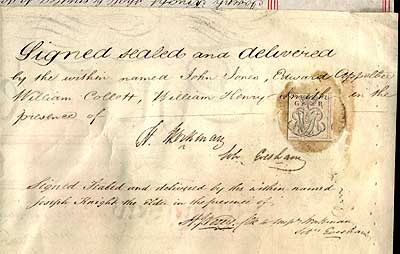 Signed sealed and delivered
by the within named John Jones, Edward
William Collett, William Henry Smith in the
presence of
G R
Sol. Evesham
Signed Sealed and delivered by the within named
Joseph Knight the elder in the presence of
Clk to Messrs Workman
Solrs Evesham